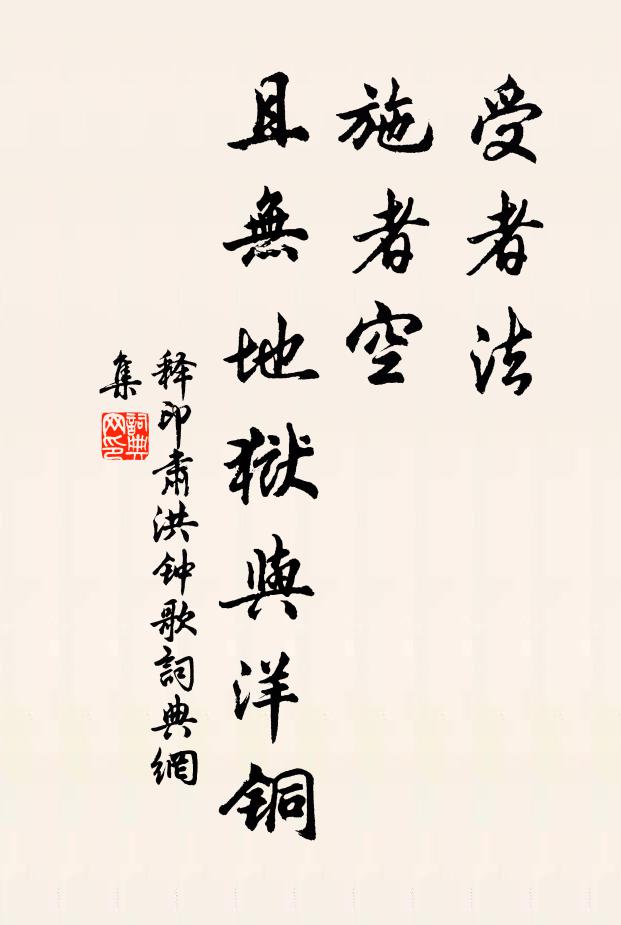 受者法
施者空
且無地獄與洋铜
释印肅洪钟歌詞典網
集
詞典
网印